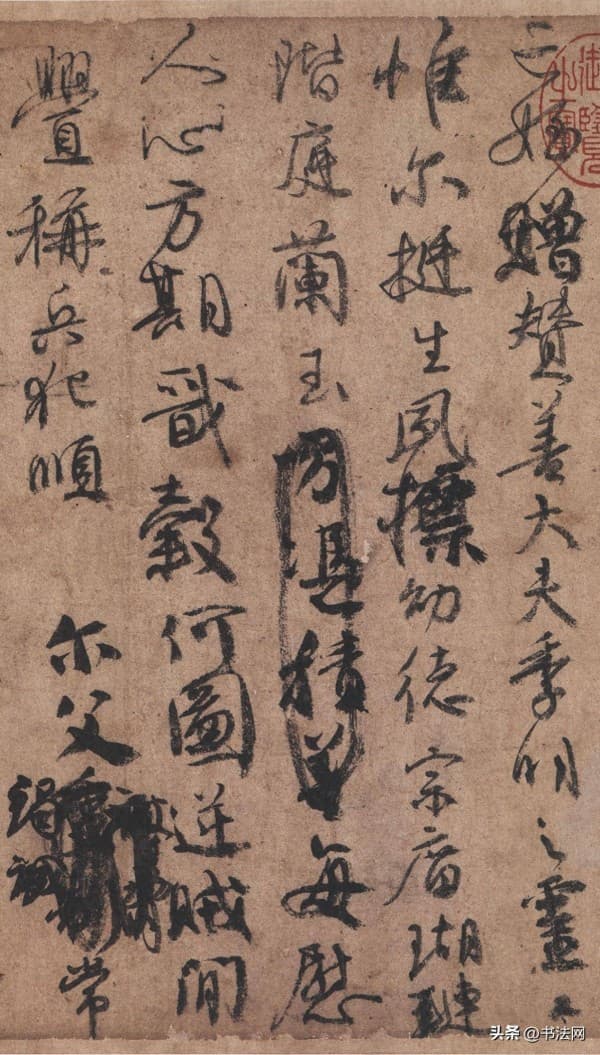 亡姪贈贊善大夫季明之靈曰
惟尔挺生夙標幼德宗廟瑚璉
階庭蘭玉方憑積善每慰
人心方期戩穀何圖逆賊間
釁稱兵犯順 尔父竭誠常
头条 @书法网